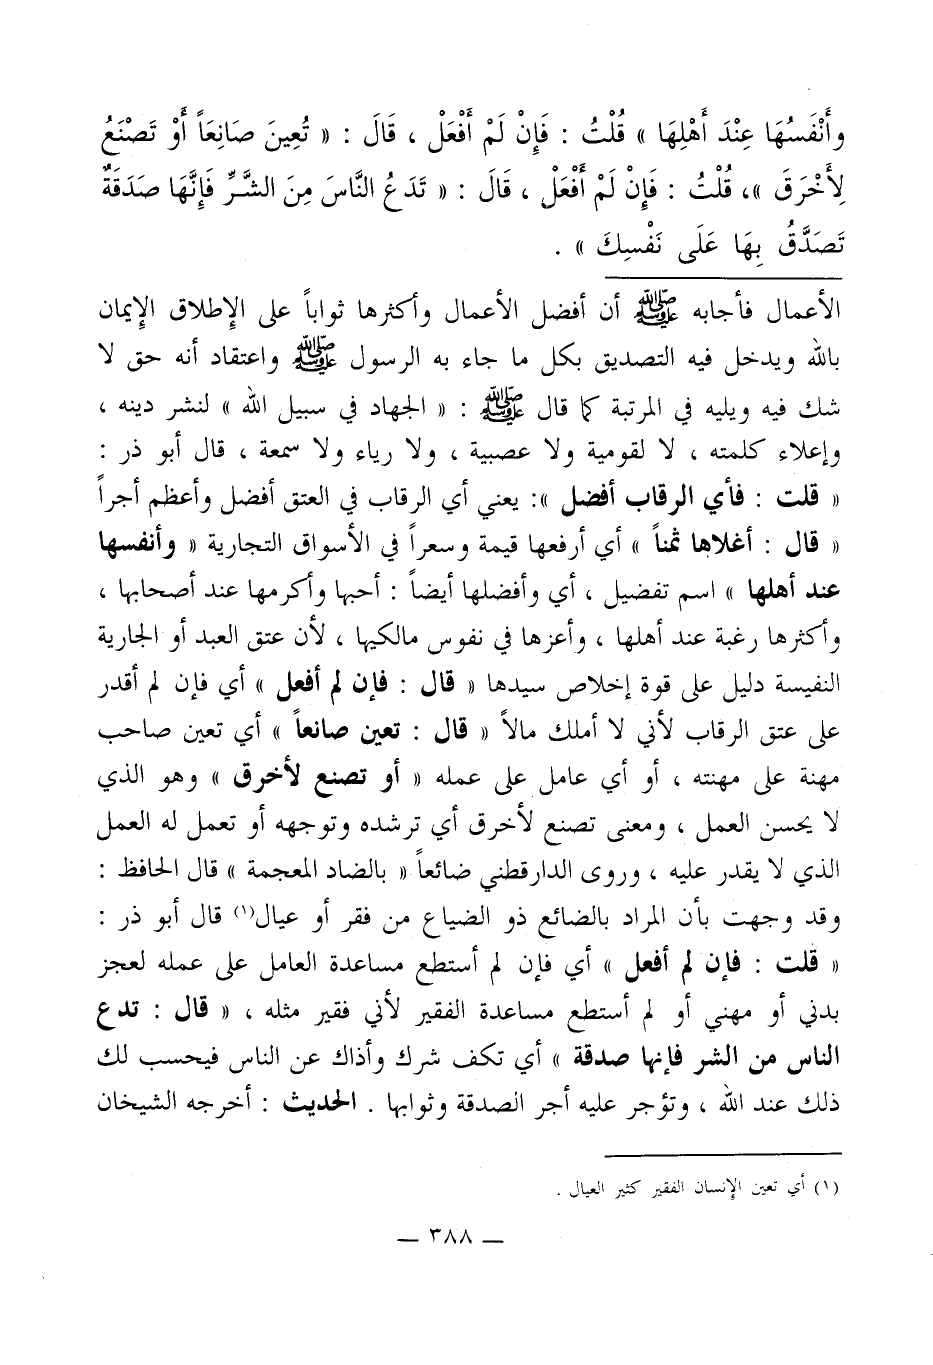 وأَنْفَسُهَا عِنْدَ أَهْلِهَا » قُلْتُ : فَإِنْ لَمْ أَفْعَلْ ، قَالَ : « تُعِينَ صَانِعَاً أَوْ تَصْنَعُ
لِأَخْرَقَ »، قُلْتُ : فَإِنْ لَمْ أَفْعَلْ ، قَالَ : « تَدَعُ النَّاسَ مِنَ الشَّرِّ فَإِنَّهَا صَدَقَةٌ
تَصَدَّقُ بِهَا عَلَى نَفْسِكَ » .
الأعمال فأجابه ﷺ أن أفضل الأعمال وأكثرها ثواباً على الإطلاق الإيمان
بالله ويدخل فيه التصديق بكل ما جاء به الرسول ﷺ واعتقاد أنه حق لا
شك فيه ويليه في المرتبة كما قال ﷺ : « الجهاد في سبيل الله » لنشر دينه ،
وإعلاء كلمته ، لا لقومية ولا عصبية ، ولا رياء ولا سمعة ، قال أبو ذر :
« قلت : فأي الرقاب أفضل »: يعني أي الرقاب في العتق أفضل وأعظم أجراً
« قال : أغلاها ثمناً » أي أرفعها قيمة وسعراً في الأسواق التجارية « وأنفسها
عند أهلها » اسم تفضيل ، أي وأفضلها أيضاً : أحبها وأكرمها عند أصحابها ،
وأكثرها رغبة عند أهلها ، وأعزها في نفوس مالكيها ، لأن عتق العبد أو الجارية
النفيسة دليل على قوة إخلاص سيدها « قال : فإن لم أفعل » أي فإن لم أقدر
على عتق الرقاب لأني لا أملك مالاً « قال : تعين صانعاً » أي تعين صاحب
مهنة على مهنته ، أو أي عامل على عمله « أو تصنع لأخرق » وهو الذي
لا يحسن العمل ، ومعنى تصنع لأخرق أي ترشده وتوجهه أو تعمل له العمل
الذي لا يقدر عليه ، وروى الدارقطني ضائعاً « بالضاد المعجمة » قال الحافظ :
وقد وجهت بأن المراد بالضائع ذو الضياع من فقر أو عيال(١) قال أبو ذر :
« قلت : فإن لم أفعل » أي فإن لم أستطع مساعدة العامل على عمله لعجز
بدني أو مهني أو لم أستطع مساعدة الفقير لأني فقير مثله ، « قال : تدع
الناس من الشر فإنها صدقة » أي تكف شرك وأذاك عن الناس فيحسب لك
ذلك عند الله ، وتؤجر عليه أجر الصدقة وثوابها . الحديث : أخرجه الشيخان
(١) أي تعين الإنسان الفقير كثير العيال .
— ٣٨٨ —